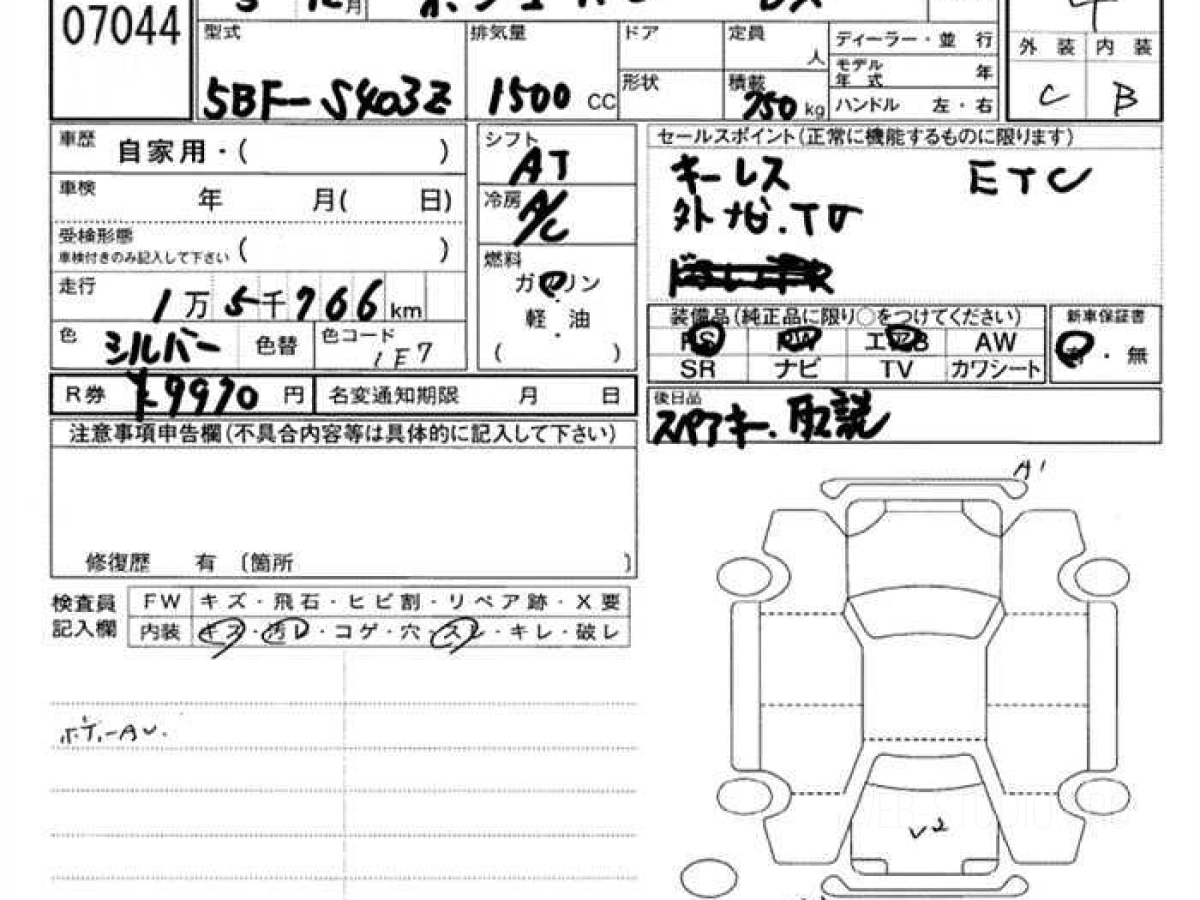 5 12月 DX
07044 型式 排気量 ドア 定員 人 ディーラー・並 行
外 装 内 装
5BF-S403Z 1500 CC 形状 積載 750 kg モデル年式 年
ハンドル 左・右
C B
車歴 自家用・( )
車検 年 月( 日)
受検形態
車検付きのみ記入して下さい ( )
走行 1万5千766km
色 シルバー 色替 色コード 1E7
R券 ¥9970 円 名変通知期限 月 日
シフト
AT
冷房 A/C
燃料
ガソリン
・
軽・油
・
( )
セールスポイント(正常に機能するものに限ります)
キーレス ETC
外ナビ.TV
装備品(純正品に限り○をつけてください)
PS PW エアB AW
SR ナビ TV カワシート
新車保証書
有・無
後日品
スペアキー、取説
注意事項申告欄(不具合内容等は具体的に記入して下さい)
修復歴 有 〔箇所 〕
検査員
記入欄
FW キズ・飛石・ヒビ割・リペア跡・X要
内装 キズ・汚レ・コゲ・穴・スレ・キレ・破レ
ボディーAU.
A1
U2